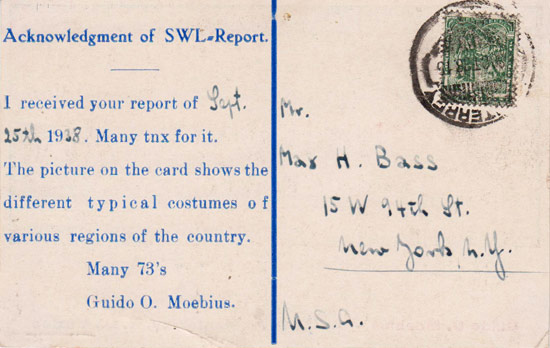 Acknowledgment of SWL=Report.
I received your report of Sept.
25th 1938. Many tnx for it.
The picture on the card shows the
different typical costumes of
various regions of the country.
Many 73's
Guido O. Moebius.
Mr.
Max H. Bass
15 W 94th St.
New York N.Y.
U.S.A.